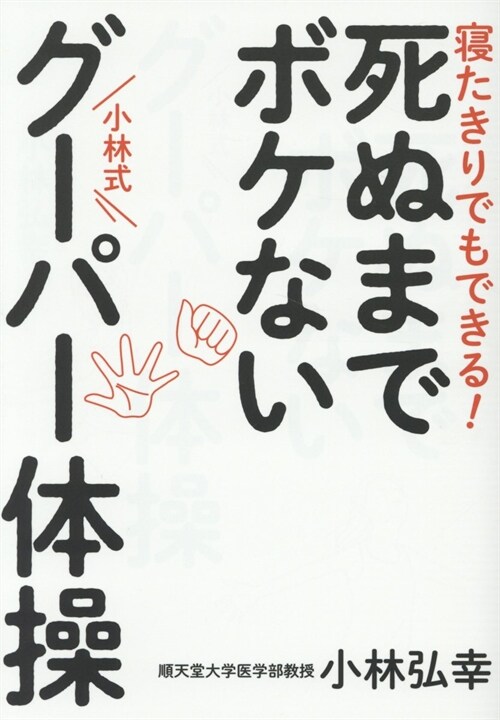 寝たきりでもできる!
死ぬまで
ボケない
小林式
グーパー体操
順天堂大学医学部教授 小林弘幸